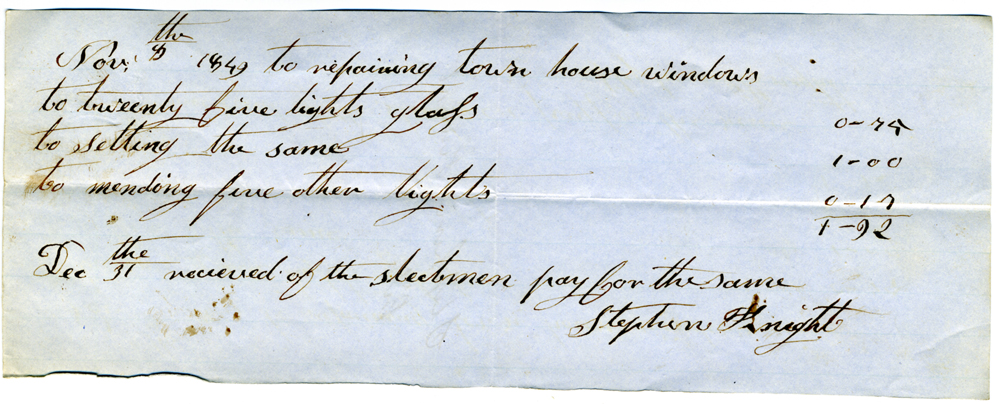 Nov. 8 the 1849 to repairing town house windows
to twenty five lights glass 0-75
to setting the same 1-00
to mending five other lights 0-17
1-92
Dec the 31 recieved of the slectmen pay for the same
Stephen Knight